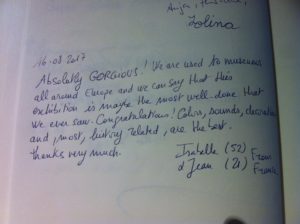 Zolina
16-08-2017
Absolutely GORGIOUS! We are used to museums
all around Europe and we can say that this
exhibition is maybe the most well-done that
we ever saw. Congratulations! Colors, sounds, decorations
and, most, history related, are the best.
thanks very much.
Isabelle (52) From
et Jean (21) France